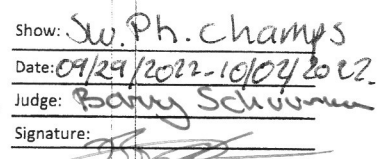 Show: Sw. Ph. Champs
Date: 09/29/2022-10/02/2022
Judge: Barry
Signature: